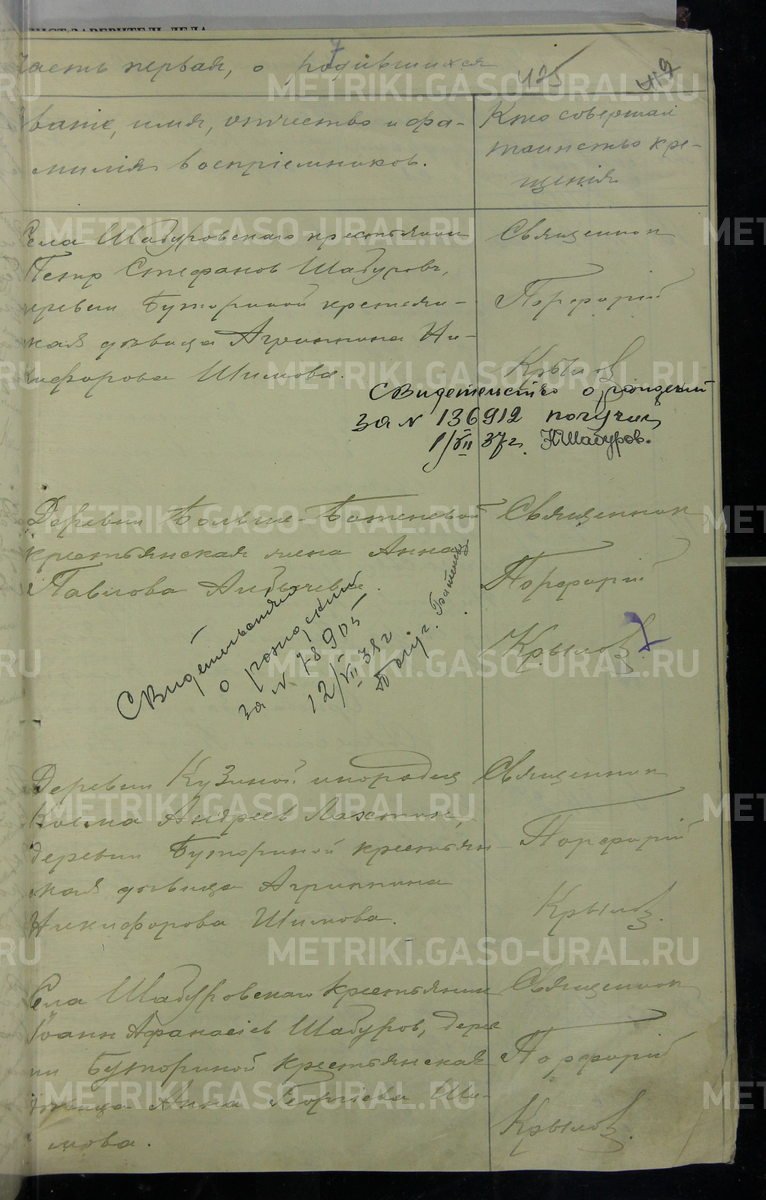 Часть первая, о родившихся
425
419
Званіе, имя, отчество и фа-
милія воспріемниковъ.
Кто совершал
таинство кре-
щенія
Села Шабуровскаго крестьянин
Петр Стефанов Шабуровъ,
деревни Буториной крестьян-
ская дѣвица Агриппина Ни-
кифорова Шимова.
Священник
Порфирій
Крылов
Свидетельство о рождении
за № 136912 получил
1/VII 37г. Н Шабуров.
Деревни Больше-Баженевой
крестьянская жена Анна
Павлова
Священник
Порфирій
Крылов.
Свидетельство
о рождении
за № 78905
12/VII 38г
Деревни Кузиной инородец
Косма Андреев Лахтин,
деревни Буториной крестьян
ская дѣвица Агриппина
Никифорова Шимова.
Священник
Порфирій
Крылов.
Села Шабуровскаго крестьянин
Іоанн Афанасіев Шабуров, дерев
ни Буториной крестьянская
дѣвица Анна Георгіева Ши-
мова.
Священник
Порфирій
Крылов.
METRIKI.GASO-URAL.RU